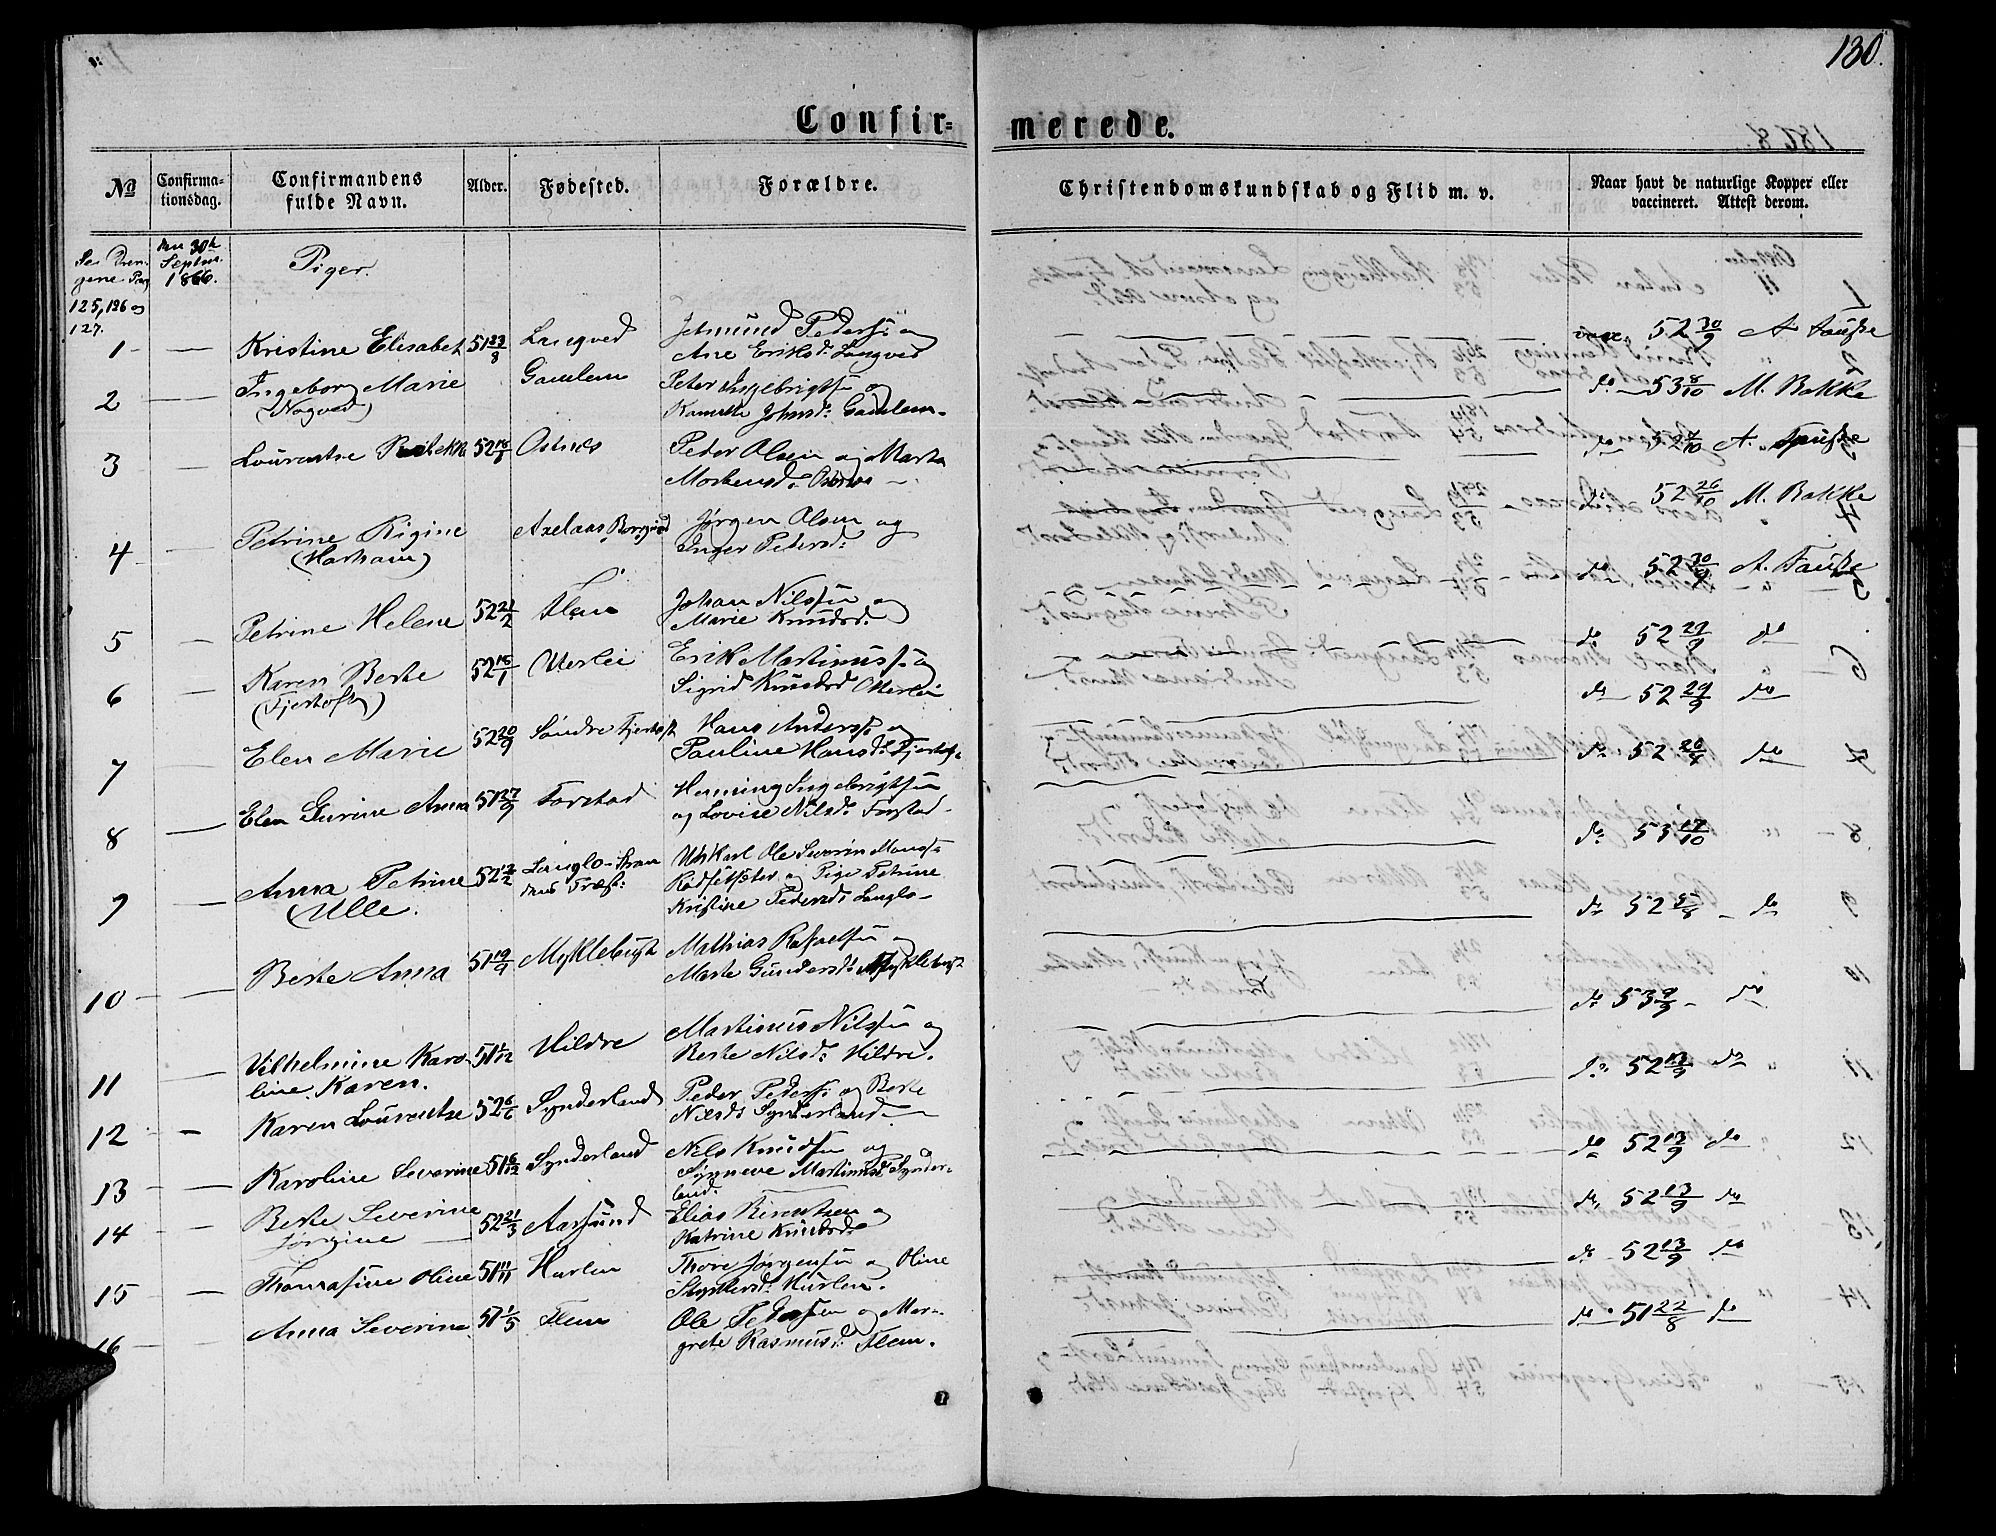 130.
Confir- merede.
No
Confirma-
tionsdag.
Confirmandens
fulde Navn.
Alder.
Fødested.
Forældre.
Christendomskundskab og Flid m. v.
Naar havt de naturlige Kopper eller
vaccineret. Attest derom.
Se Dren-
gene Pag
125, 126 og
127.
den 30te
Septbr.
1866.
Piger.
1 Kristine Elisabet 51 23/8 Langved Jetmund Peders: og
Ane Eriksd: Langved
52 30/9 A Fauske
2 Ingeborg Marie Gamlem Peter Ingebrigtsen og
(Nogved) Johnsd: Gamlem
do 53 8/10 M. Bakke
3 Lourentse 52 Ostnes Peder Olsen og Marte
Mortensd: Ostnes
do 52 7/10 A. Fauske
4 Petrine Rigine Jørgen Olsen og
(Harham) Inger Petersd:
do 52 26/10 M. Bakke
5 Petrine Helene 52 21/2 Flem Johan Nilssen og
Marie Knudsd:
do 52 30/9 A. Fauske
6 Karen Berte 52 16/1 Uterlei Erik Martinuss: og
(Fjertoft) Sigrid Knudsd: Otterlei
do 52 29/9 do
7 Elen Marie 52 20/9 Søndre Fjertoft Hans Anderss: og
Pauline Hansd: Fjertoft
do 52 29/9 do
8 Elen Gurine Anna 51 27/9 Farstad Henning Ingebrigtsen
og Lovise Nilsd: Farstad
do 52 26/8 do
9 Anna Petrine 52 12/2 Langlo- Ole Severin
(Ulle. og Pige Petrine
Kristine Pedersd: Langlo
do 53 17/10
10 Berte Anna 51 19/9 Myklebust Mathias Rafaelsen og
Marte Gundersd: Myklebust
do 52 5/8 do
11 Vilhelmine Karo- 51 1/12 Hildre Martinus Nilssen og
line Karen. Berte Nilsd: Hildre.
do 53 9/9 do
12 Karen Lourentse 52 6/6 Synderland Peder Peders: og Berte
Nilsd: Synderland
do 52 13/9 do
13 Karoline Severine 51 6/12 Synderland Nils Knudsen og
Sygneve Martinusd: Synder-
land.
do 52 13/9 do
14 Berte Severine 52 21/3 Aarsund Elias Berntsen og
Jørgine Katrine Knudsd:
do 52 13/9 do
15 Thomasine Oline 51 11/11 Hurlen Thore Jørgensen og Oline
Hurlen.
do 52 13/9 do
16 Anna Severine 51 1/5 Flem Ole Pedersen og Mar-
grete Rasmusd: Flem.
do 51 22/8 do